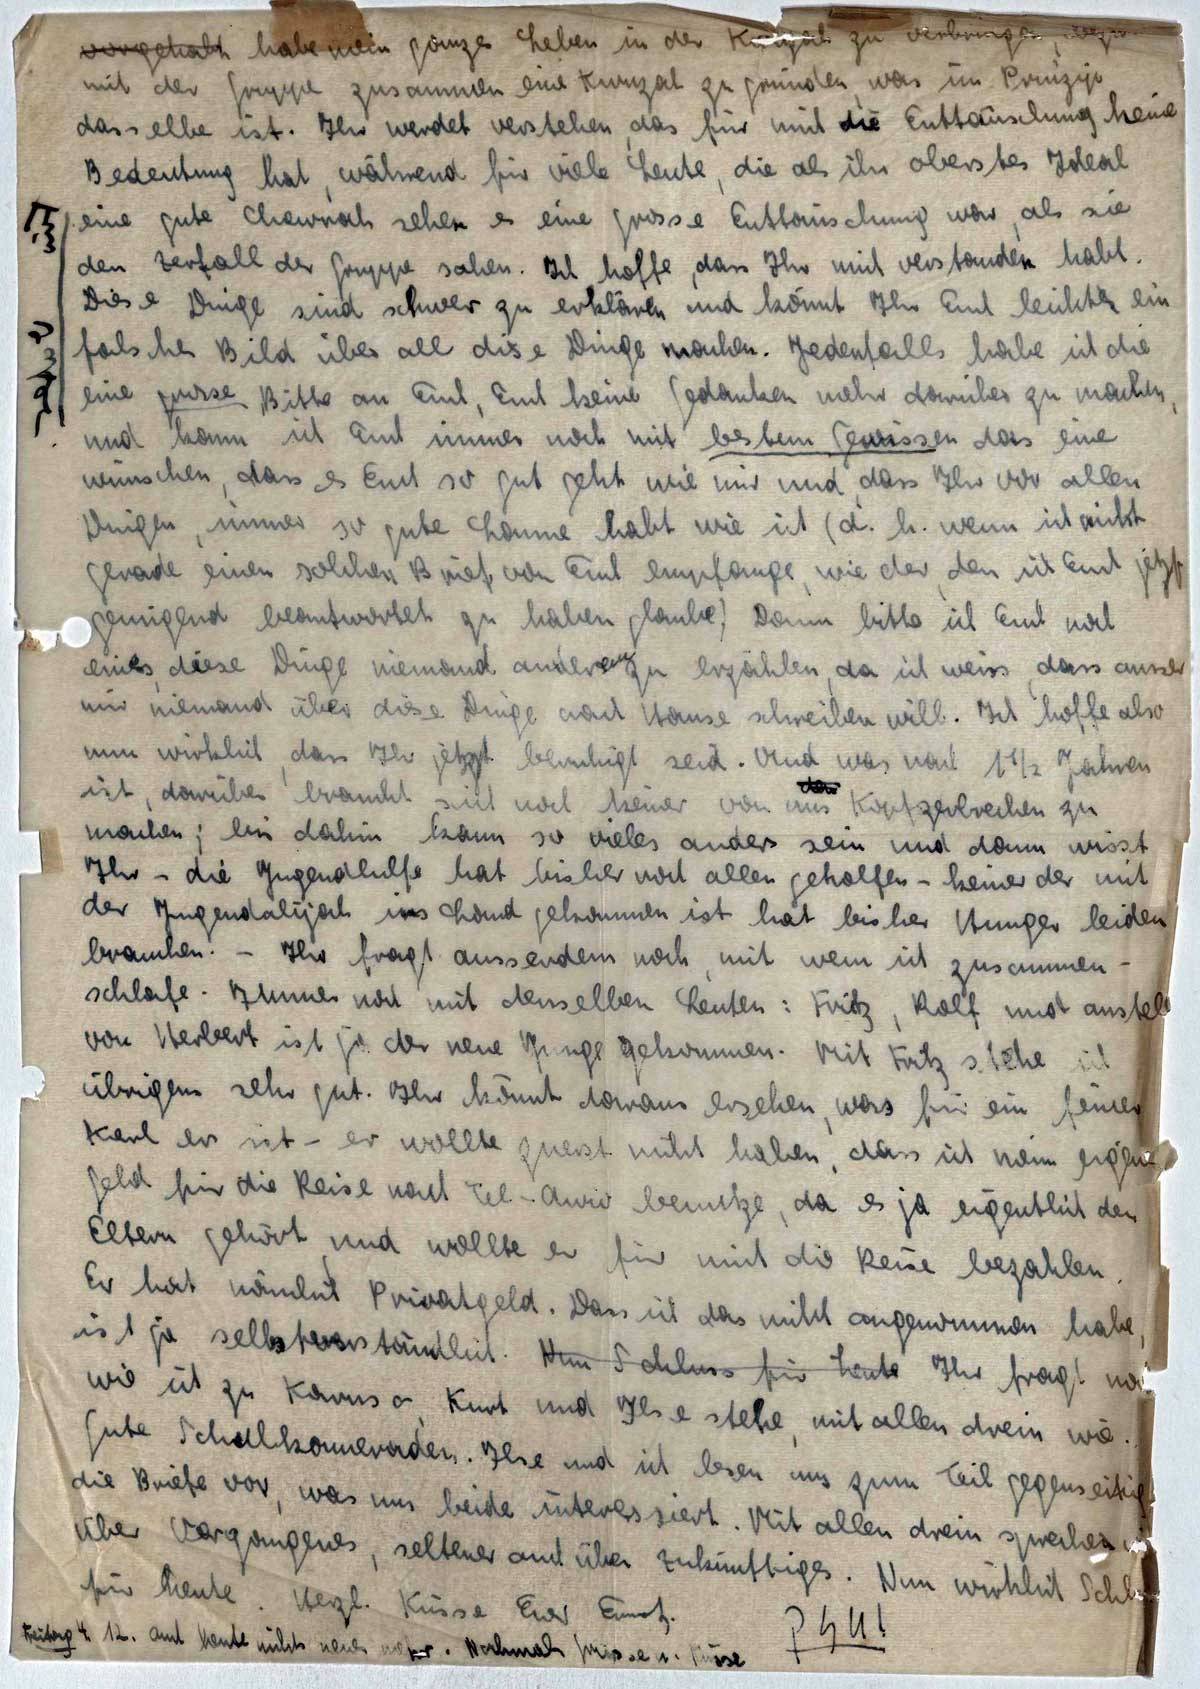 vorgehabt habe mein ganzes Leben in der Kwuzah zu verbringen, bezw.
mit der Gruppe zusammen eine Kwuzah zu gründen, was im Prinzip
dasselbe ist. Ihr werdet verstehen, das für mich die Enttäuschung keine
Bedeutung hat, während für viele Leute, die als ihr oberstes Ideal
eine gute Chewrah sehen es eine grosse Enttäuschung war, als sie
den Zerfall der Gruppe sahen. Ich hoffe, dass Ihr mich verstanden habt.
Diese Dinge sind schwer zu erklären und könnt Ihr Euch leicht ein
falsches Bild über all diese Dinge machen. Jedenfalls habe ich die
eine grosse Bitte an Euch, Euch keine Gedanken mehr darüber zu machen,
und kann ich Euch immer noch mit bestem Gewissen das eine
wünschen, dass es Euch so gut geht wie mir und, dass Ihr vor allen
Dingen, immer so gute Laune habt wie ich (d. h. wenn ich nicht
gerade einen solchen Brief von Euch empfange, wie der, den ich Euch jetzt
genügend beantwortet zu haben glaube) Dann bitte ich Euch noch
eines, diese Dinge niemand anderem zu erzählen, da ich weiss, dass ausser
mir niemand über diese Dinge nach Hause schreiben will. Ich hoffe also
nun wirklich, dass Ihr jetzt beruhigt seid. Und was nach 1½ Jahren
ist, darüber braucht sich noch keiner von uns Kopfzerbrechen zu
machen; bis dahin kann so vieles anders sein und dann wisst
Ihr – die Jugendhilfe hat bisher noch allen geholfen – keiner der mit
der Jugendalijah ins Land gekommen ist hat bisher Hunger leiden
brauchen. – Ihr fragt ausserdem noch, mit wem ich zusammen-
schlafe. Immer noch mit denselben Leuten: Fritz, Rolf und anstelle
von Herbert ist ja der neue Junge gekommen. Mit Fritz stehe ich
übrigens sehr gut. Ihr könnt daraus ersehen, was für ein feiner
Kerl er ist – er wollte zuerst nicht haben, dass ich mein eigenes
Geld für die Reise nach Tel-Awiv benutze, da es ja eigentlich den
Eltern gehört, und wollte er für mich die Reise bezahlen.
Er hat nämlich Privatgeld. Dass ich das nicht angenommen habe,
ist ja selbstverständlich. Nun Schluss für heute Ihr fragt noch
wie ich zu Kurt und Ilse stehe, mit allen drein wie
gute Schulkameraden. Ilse und ich lesen uns zum Teil gegenseitig
die Briefe vor, was uns beide interessiert. Mit allen drein sprechen wir
über Vergangenes, seltener auch über Zukünftiges. Nun wirklich Schluss
für heute. Herzl. Küsse Euer Ernst.
Freitag 4. 12. auch heute nichts neues. Nochmals Grüsse u. Küsse